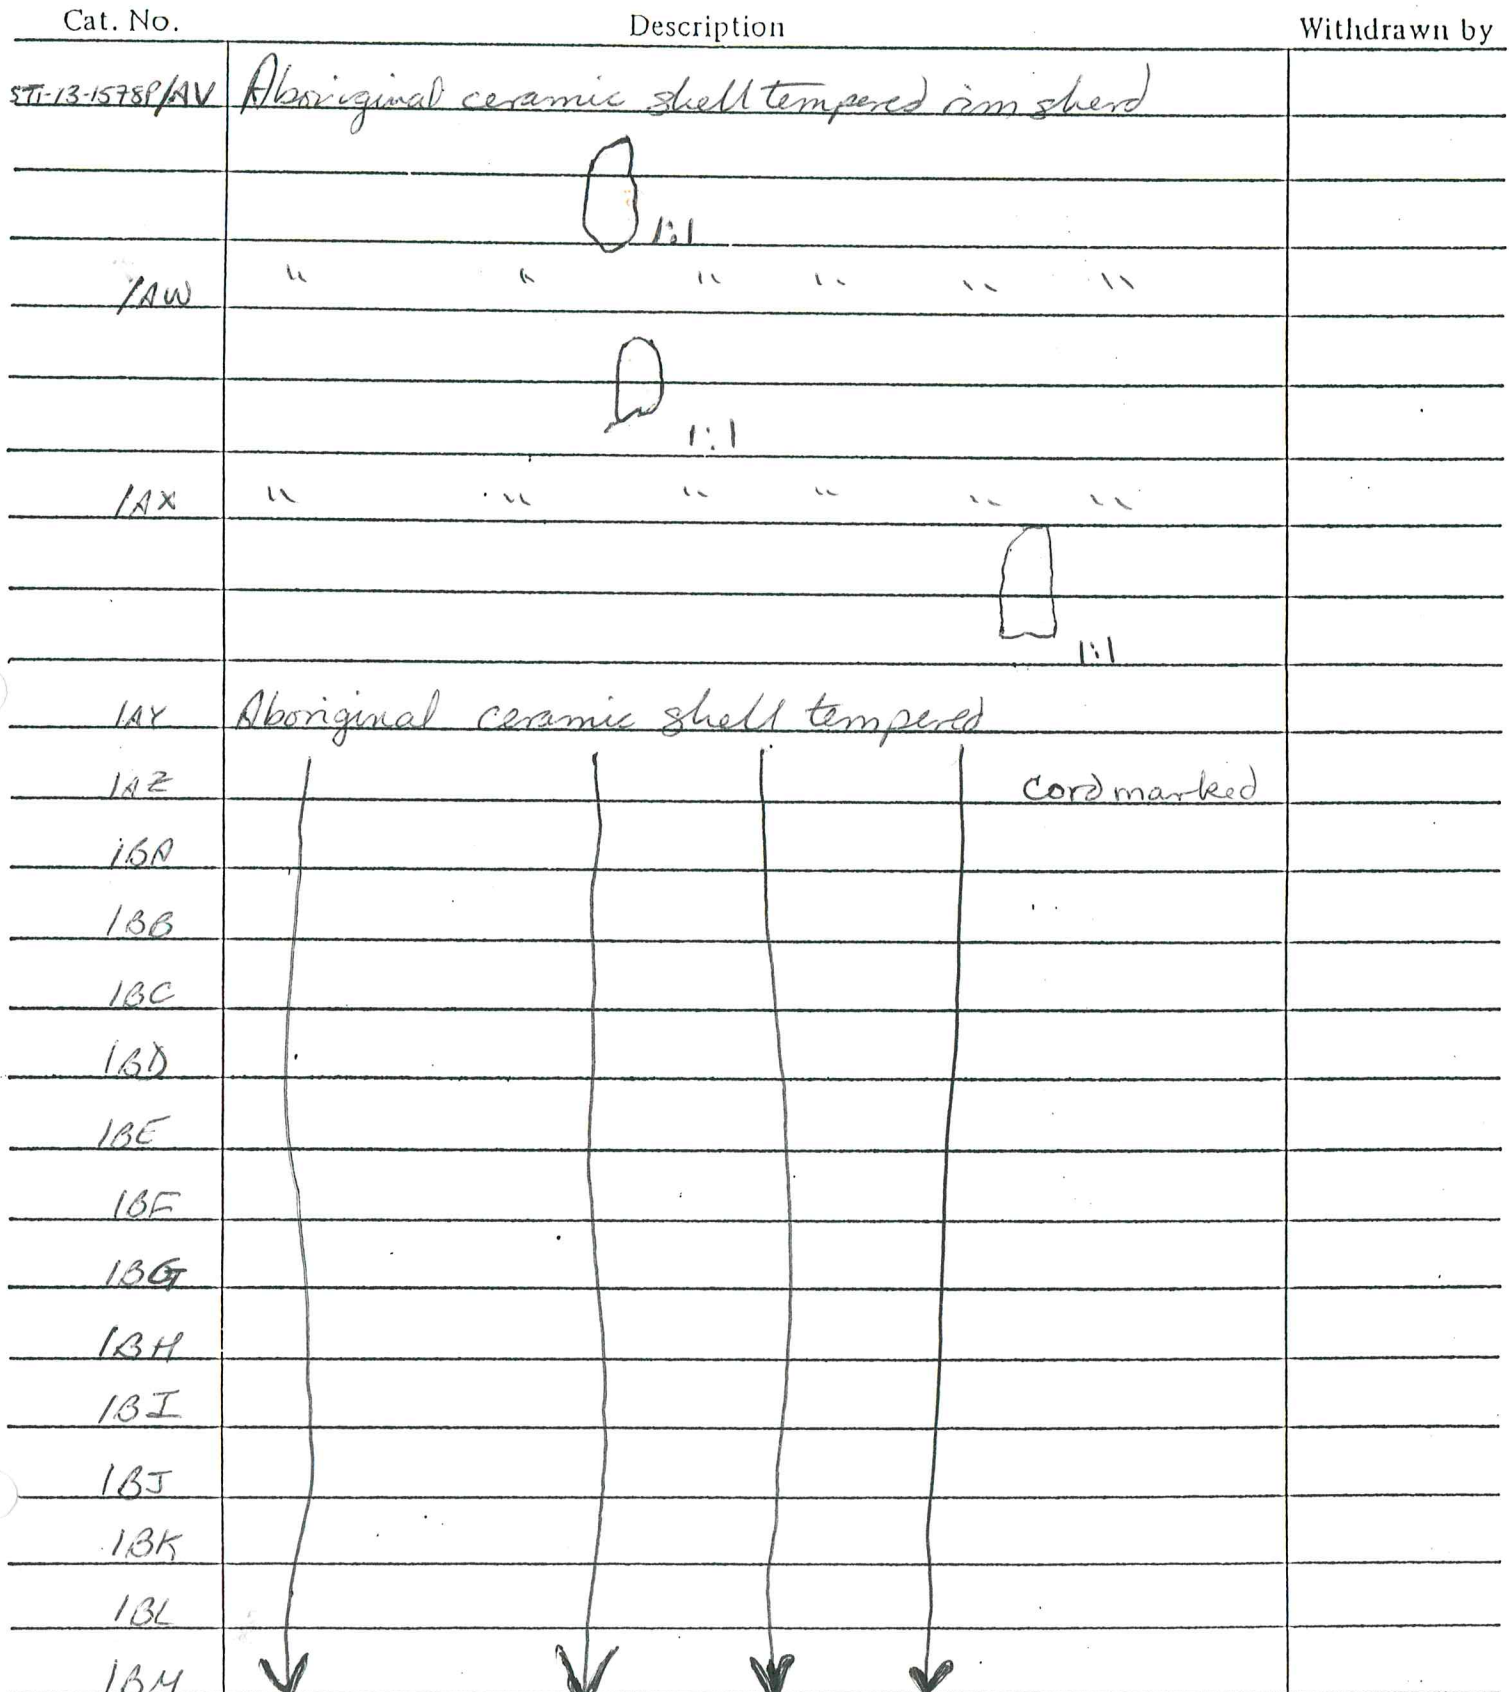 Cat. No. Description Withdrawn by
STI-13-1578P/AV Aboriginal ceramic shell tempered rim sherd
1:1
/AW " " " " " "
1:1
/AX " " " " " "
1:1
/AY Aboriginal ceramic shell tempered
/AZ Cord marked
/BA
/BB
/BC
/BD
/BE
/BF
/BG
/BH
/BI
/BJ
/BK
/BL
/BM